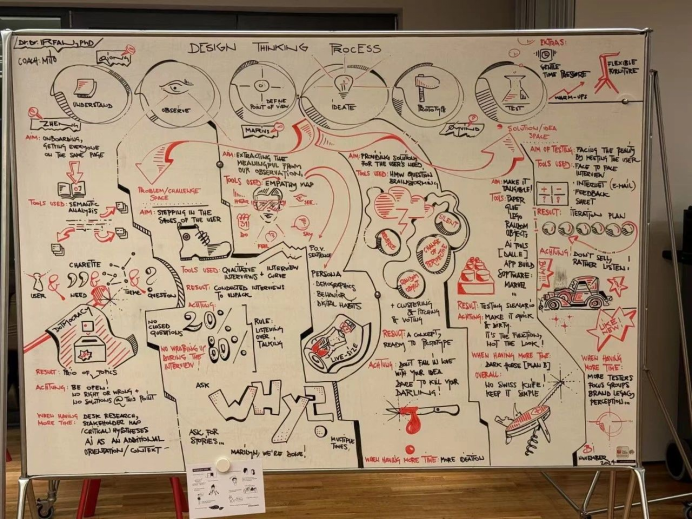 DESIGN THINKING PROCESS
COACH: MITO
EXTRAS:
TIME PRESSURE
WARM-UPS
FLEXIBLE
FURNITURE
UNDERSTAND
OBSERVE
DEFINE
POINT OF VIEW
IDEATE
PROTOTYPE
TEST
AIM: ONBOARDING,
GETTING EVERYONE
ON THE SAME PAGE
TOOLS USED: SEMANTIC
ANALYSIS
CHARETTE
USER
NEED
THEME
QUESTION
DOTMOCRACY
RESULT: TRIO OF TOPICS
ACHTUNG: BE OPEN!
NO RIGHT OR WRONG +
NO SOLUTIONS @ THIS POINT
WHEN HAVING
MORE TIME: DESK RESEARCH,
STAKEHOLDER MAP
(CRITICAL) HYPOTHESES
AI AS AN ADDITIONAL
ORIENTATION/CONTEXT
PROBLEM/CHALLENGE
SPACE
AIM: STEPPING IN THE
SHOES OF THE USER
TOOLS USED: QUALITATIVE
INTERVIEWS + INTERVIEW
CURVE
RESULT: CONDUCTED INTERVIEWS
TO UNPACK
ACHTUNG:
NO CLOSED
QUESTIONS
20%
80%
RULE:
LISTENING
OVER
TALKING
NO WRAPPING UP
DURING THE
INTERVIEW
ASK
WHY?
ASK FOR
STORIES...
MULTIPLE
TIMES,
MARILYN, WE'RE DONE!
MARCUS
AIM: EXTRACTING THE
MEANINGFUL FROM
OUR OBSERVATIONS
TOOLS USED: EMPATHY MAP
SAY
DO
FEEL
P.O.V.
SENTENCE
PERSONA
DEMOGRAPHICS
BEHAVIOR
DIGITAL HABITS
AIM: PROVIDING SOLUTIONS
FOR THE USER'S NEED
TOOLS USED: HMW QUESTION
BRAINSTORMING
SILENT
+ CLUSTERING & TITELING
& VOTING
RESULT: A CONCEPT,
READY TO PROTOTYPE
ACHTUNG: DON'T FALL IN LOVE
WITH YOUR IDEA
DARE TO KILL YOUR
DARLING!
WHEN HAVING MORE TIME: MORE IDEATION
SOLUTION/IDEA
SPACE
AIM: MAKE IT
TANGIBLE!
TOOLS: PAPER
GLUE
LEGO
RANDOM
OBJECTS
AI TOOLS
[DALL·E]
APP BUILD
SOFTWARE:
MARVEL
ACHTUNG: MAKE IT QUICK
& DIRTY.
IT'S THE FUNCTION,
NOT THE LOOK!
WHEN HAVING MORE TIME:
DARK HORSE [PLAN B]
OVERALL:
NO SWISS KNIFE:
KEEP IT SIMPLE
AIM OF TESTING: FACING THE REALITY
BY MEETING THE USER
TOOLS USED: FACE TO FACE
INTERVIEW
+ INTERNET (E-MAIL)
FEEDBACK
SHEET
RESULT: ITERATION PLAN
ACHTUNG: DON'T SELL,
RATHER LISTEN!
WHEN HAVING
MORE TIME:
MORE TESTERS
FOCUS GROUPS
BRAND LEGACY
PERCEPTION...